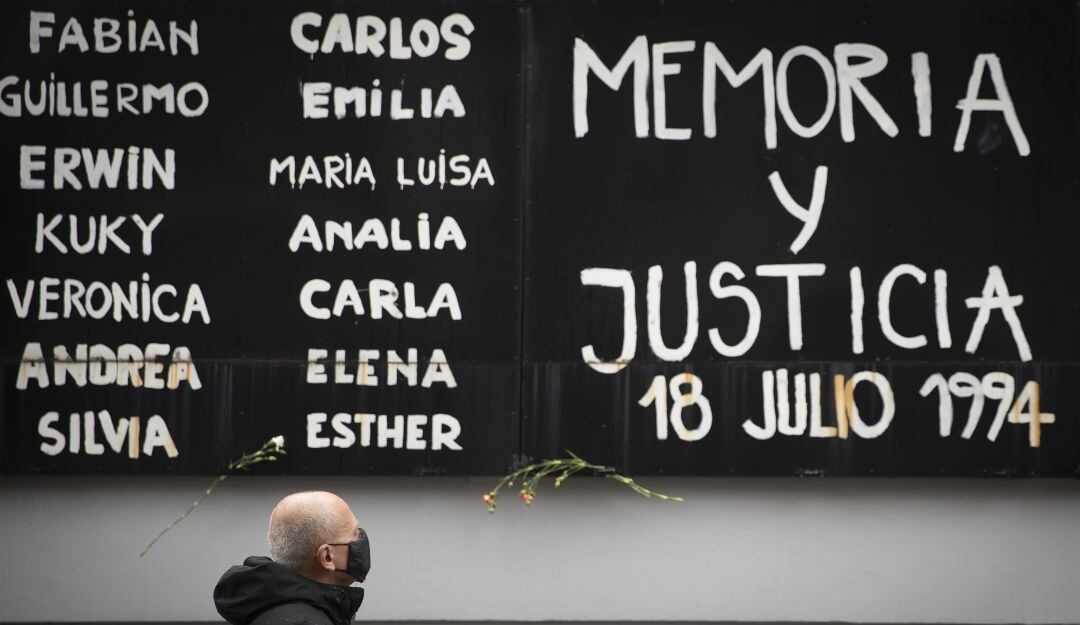 FABIAN
GUILLERMO
ERWIN
KUKY
VERONICA
ANDREA
SILVIA
CARLOS
EMILIA
MARIA LUISA
ANALIA
CARLA
ELENA
ESTHER
MEMORIA
Y
JUSTICIA
18 JULIO 1994